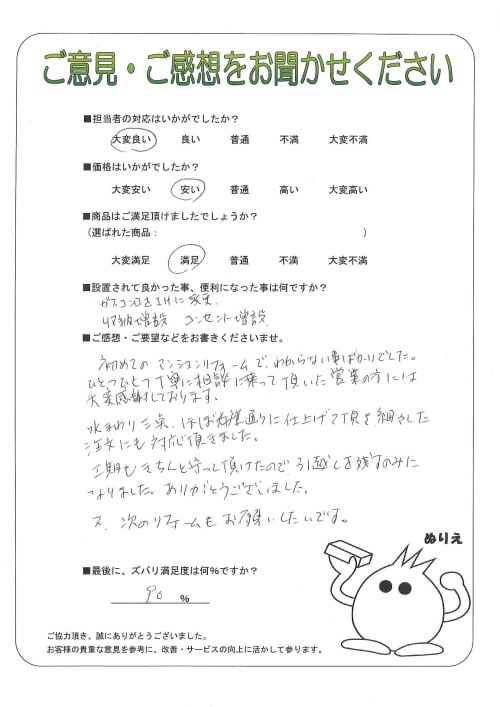 ご意見・ご感想をお聞かせください
■担当者の対応はいかがでしたか?
大変良い 良い 普通 不満 大変不満
■価格はいかがでしたか?
大変安い 安い 普通 高い 大変高い
■商品はご満足頂けましたでしょうか?
(選ばれた商品: )
大変満足 満足 普通 不満 大変不満
■設置されて良かった事、便利になった事は何ですか?
ガスコンロをIHに変更
収納増設 コンセント増設
■ご感想・ご要望などをお書きくださいませ。
初めてのマンションリフォームで、わからない事ばかりでした。
ひとつひとつ丁寧に相談に乗って頂いた営業の方には
大変感謝しております。
水まわり三点、ほぼ希望通りに仕上げて頂き、細々した
注文にも対応頂きました。
工期もきちんと守って頂けたので、引越しを残すのみに
なりました。ありがとうございました。
又、次のリフォームもお願いしたいです。
ぬりえ
■最後に、ズバリ満足度は何%ですか?
90 %
ご協力頂き、誠にありがとうございました。
お客様の貴重な意見を参考に、改善・サービスの向上に活かして参ります。